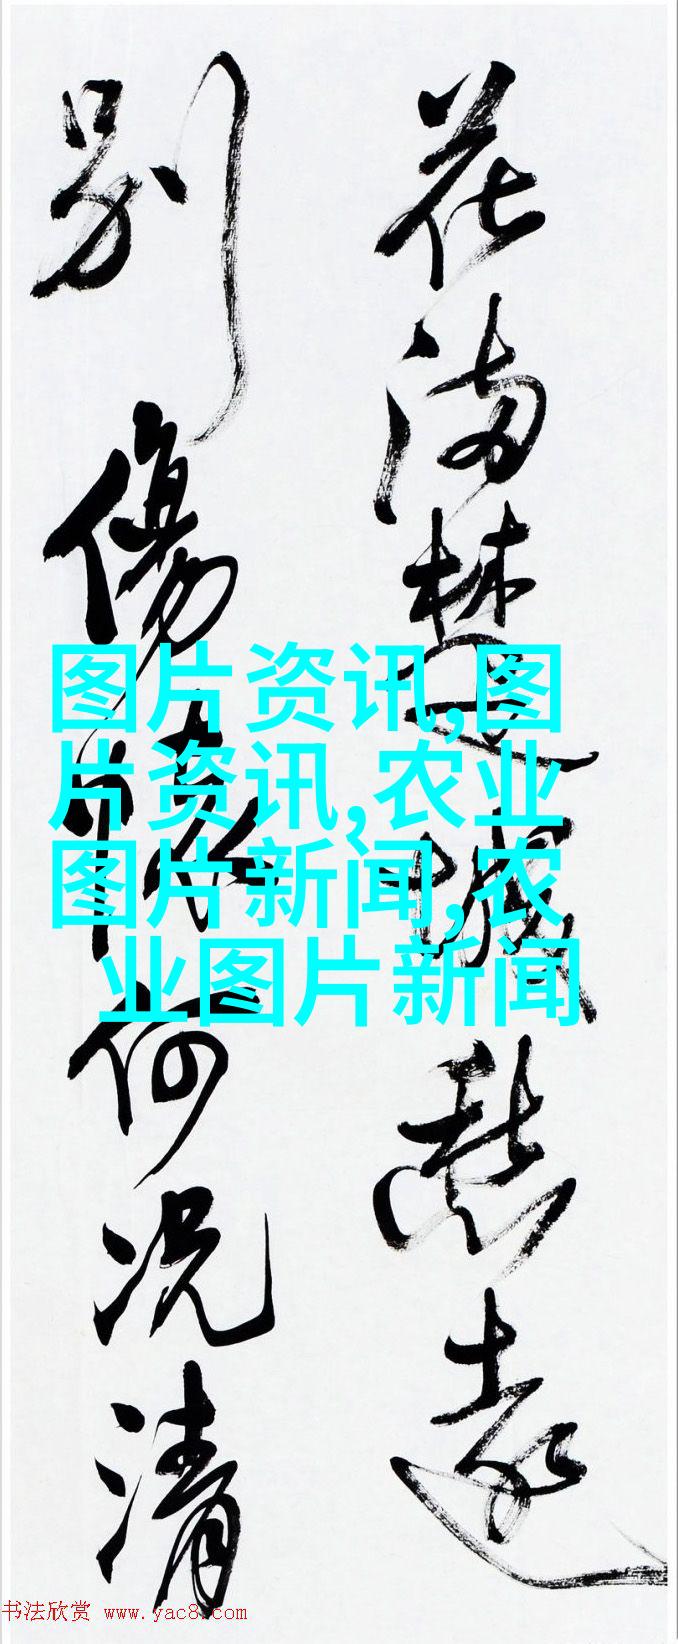 花滿楚城愁遠
別傷情何況清
图片资讯,图
片资讯,农业
图片新闻,农
业图片新闻
书法欣赏 www.yac8.com